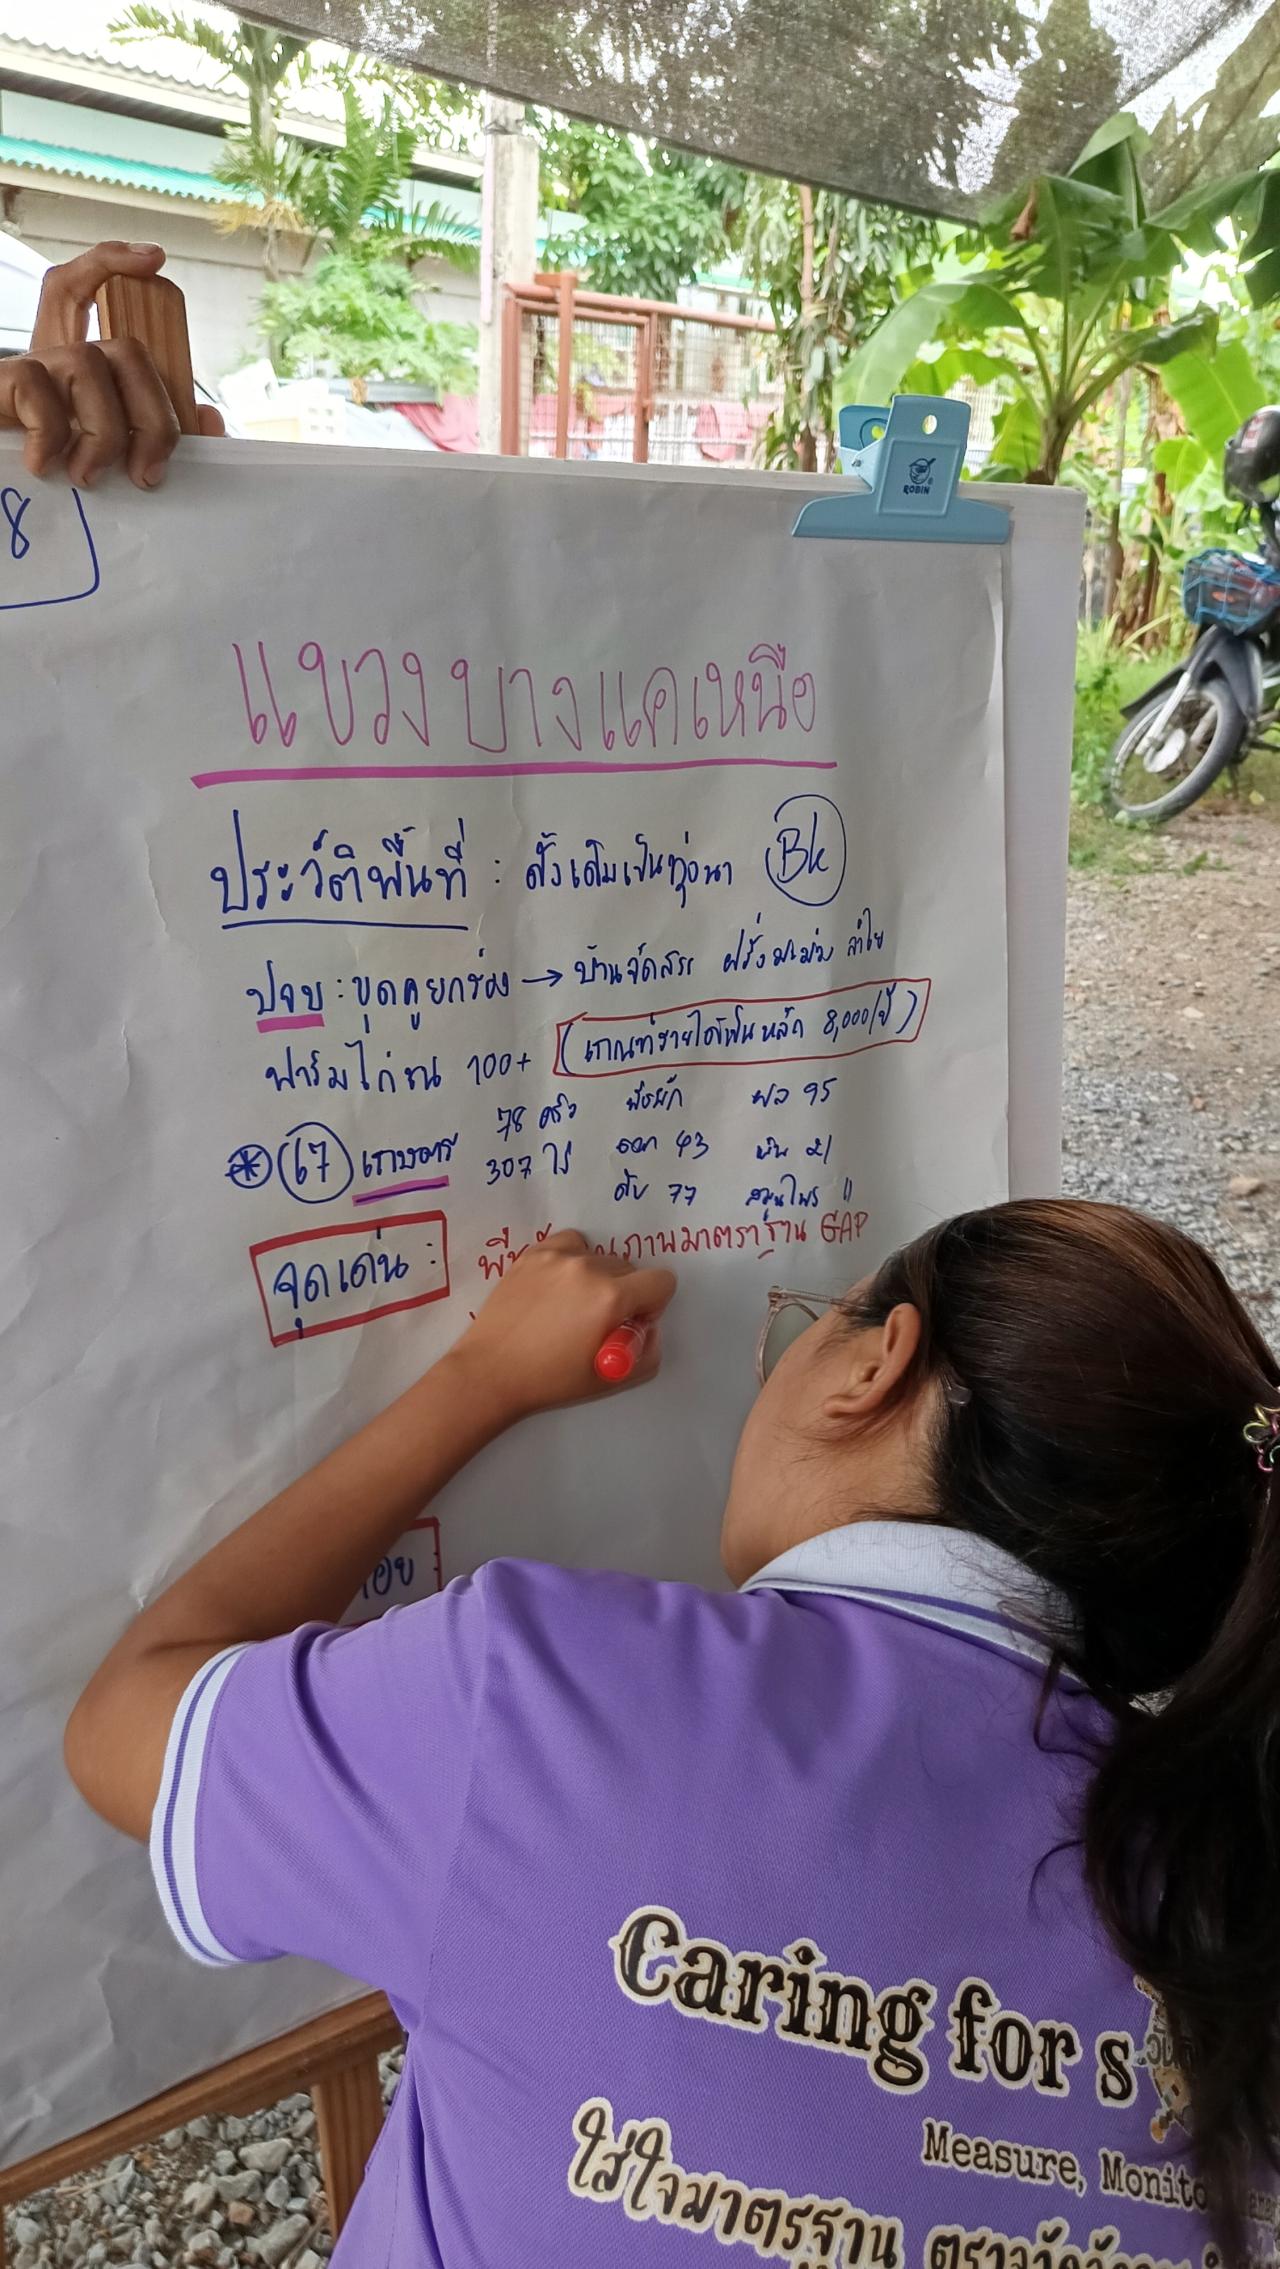 8
แขวงบางแคเหนือ
ประวัติพื้นที่ : ดั้งเดิมเป็นทุ่งนา Bk
ปจบ : ขุดคูยกร่อง → บ้านจัดสรร ฝรั่ง มะม่วง ลำไย
ฟาร์มไก่ชน 100+ (เกณฑ์รายได้เป็นหลัก 8,000/ปี)
78 ครัว พืชผัก ผล 95
67 เกษตร 307 ไร่ ดอก 43
ดับ 77 สมุนไพร 11
จุดเด่น : คุณภาพมาตราฐาน GAP
ROBIN
Caring for s
Measure, Monito
ใส่ใจมาตรฐาน